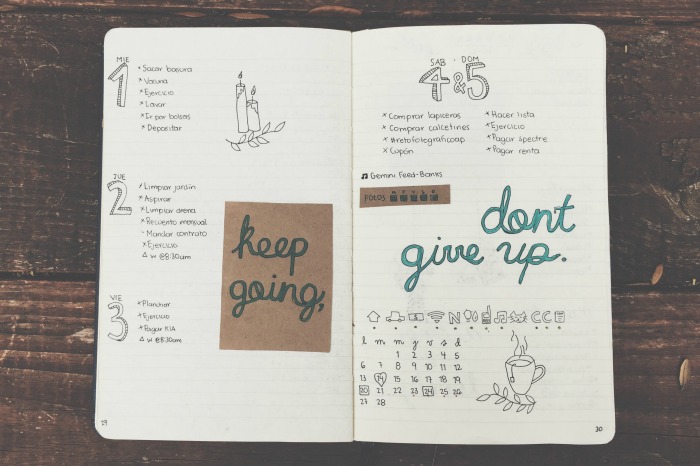 MIE
1
× Sacar basura
× Vacuna
× Ejercicio
× Lavar
× Ir por bolsas
× Depositar
JUE
2
× Limpiar jardín
× Aspirar
× Limpiar arena
× Recuento mensual
- Mandar contrato
× Ejercicio
△ w @8:30am
VIE
3
× Planchar
× Ejercicio
× Pagar KIA
△ w @8:30am
keep
going,
29
SAB · DOM
4&5
× Comprar lapiceros
× Comprar calcetines
× #retofotograficoap
× Cupón
× Hacer lista
× Ejercicio
× Pagar spectre
× Pagar renta
♫ Gemini Feed-Banks
Fotos
dont
give up.
N CC
l m m j v s d
1 2 3 4 5
6 7 8 9 10 11 12
13 14 15 16 17 18 19
20 21 22 23 24 25 26
27 28
30